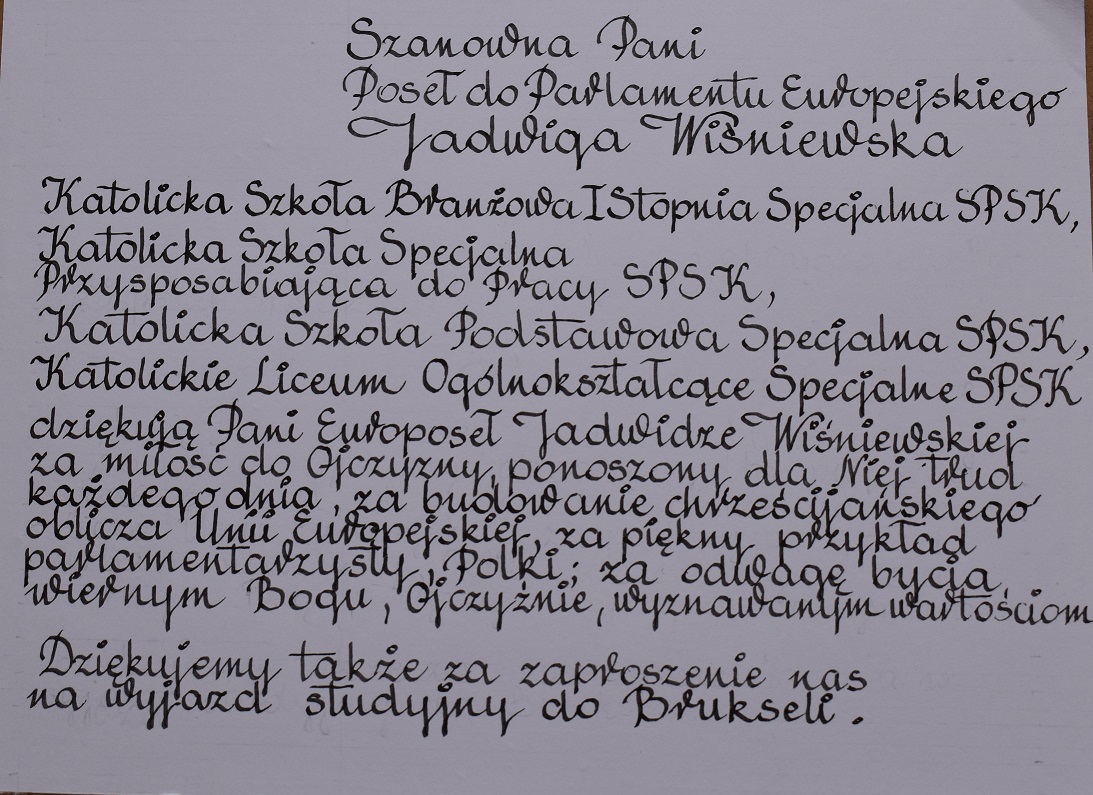 Szanowna Pani
Poseł do Parlamentu Europejskiego
Jadwiga Wiśniewska
Katolicka Szkoła Branżowa I Stopnia Specjalna SPSK,
Katolicka Szkoła Specjalna
Przysposabiająca do Pracy SPSK,
Katolicka Szkoła Podstawowa Specjalna SPSK,
Katolickie Liceum Ogólnokształcące Specjalne SPSK
dziękują Pani Europoseł Jadwidze Wiśniewskiej
za miłość do Ojczyzny, ponoszony dla Niej trud
każdego dnia, za budowanie chrześcijańskiego
oblicza Unii Europejskiej, za piękny przykład
parlamentarzysty, Polki; za odwagę bycia
wiernym Bogu, Ojczyźnie, wyznawanym wartościom
Dziękujemy także za zaproszenie nas
na wyjazd studyjny do Brukseli.